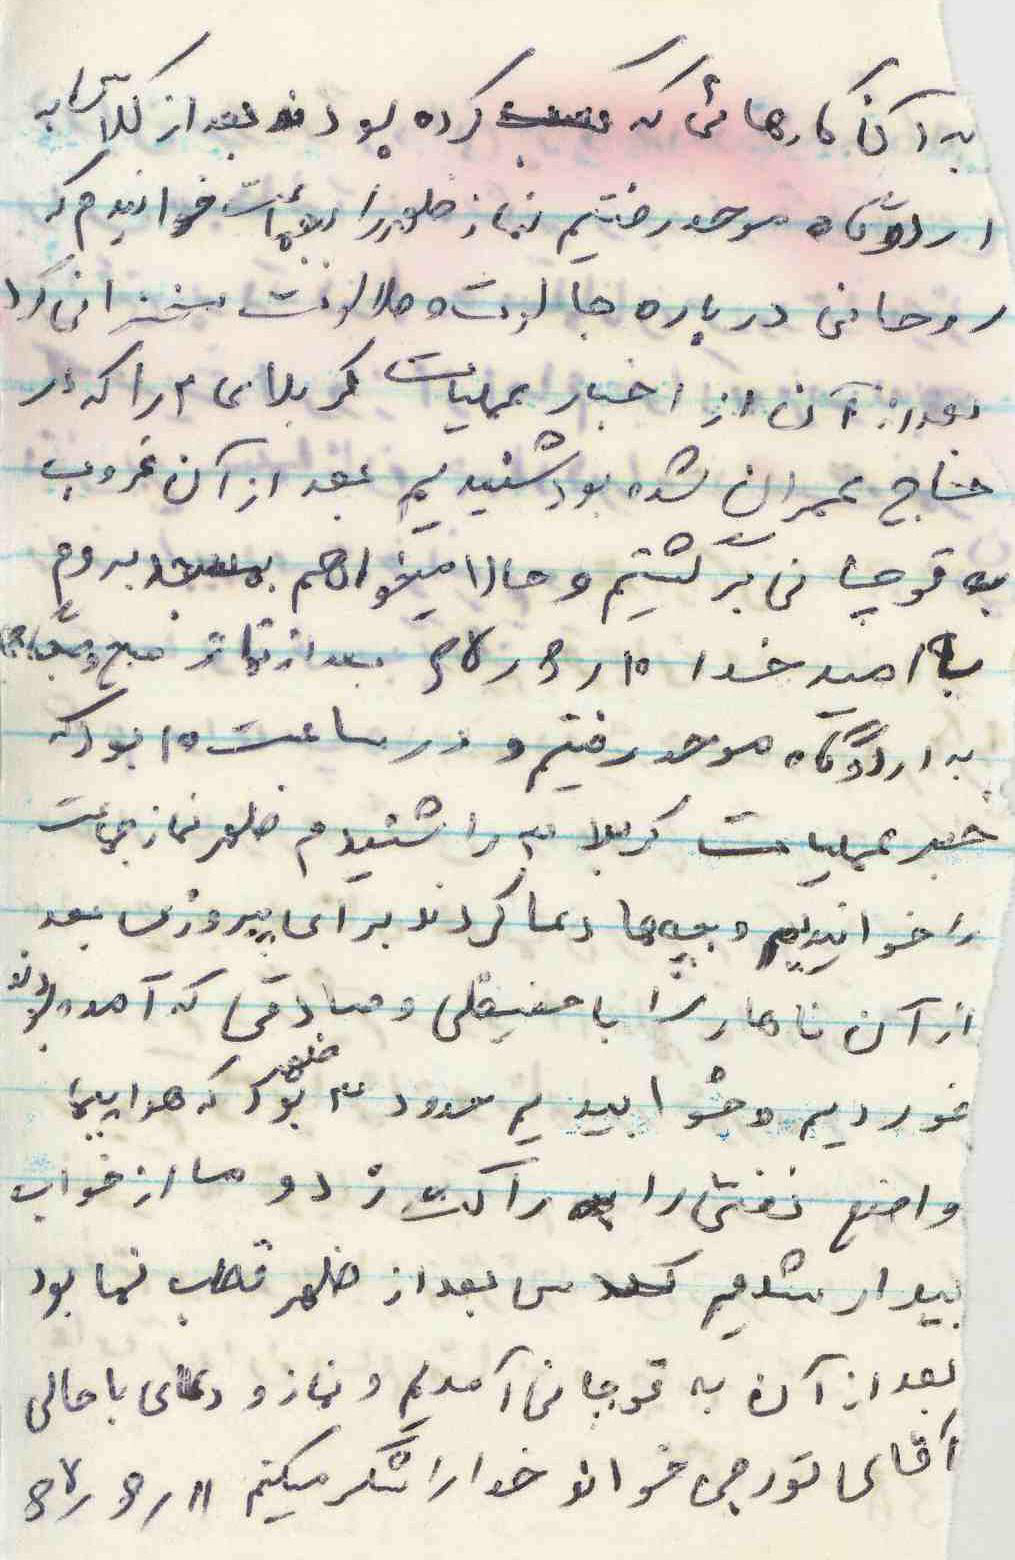 به آن کارهائی که کسب کرده بودند بعد از کلاس به
اردوگاه موحد رفتیم نماز ظهر را بجماعت خواندیم که
روحانی درباره جالوت و طالوت سخنرانی کرد
بعد از آن از اخبار عملیات کربلای ۲ را که در
حاج عمران شده بود شنیدیم بعد از آن غروب
به قوچانی برگشتیم و حالا میخواهم بروم
با امید خدا ۱۰ر۶ر۶۵ بعد از نماز صبح و
به اردوگاه موحد رفتیم و در ساعت ۱۰ بود که
خبر عملیات کربلا ۳ را شنیدم ظهر نماز جماعت
را خواندیم و بچه‌ها دعا کردند برای پیروزی بعد
از آن ناهار را با حنیفلی و صادقی که آمده بودند
خوردیم و خوابیدیم حدود ۳ ظهر بود که هواپیما
واضع نفتی را راکت زد و ما از خواب
بیدار شدیم کلاس بعد از ظهر قطب نما بود
بعد از آن به قوچانی آمدیم و نماز و دعای با حالی
آقای تورجی خواند خدا را شکر میکنم ۱۱ر۶ر۶۵